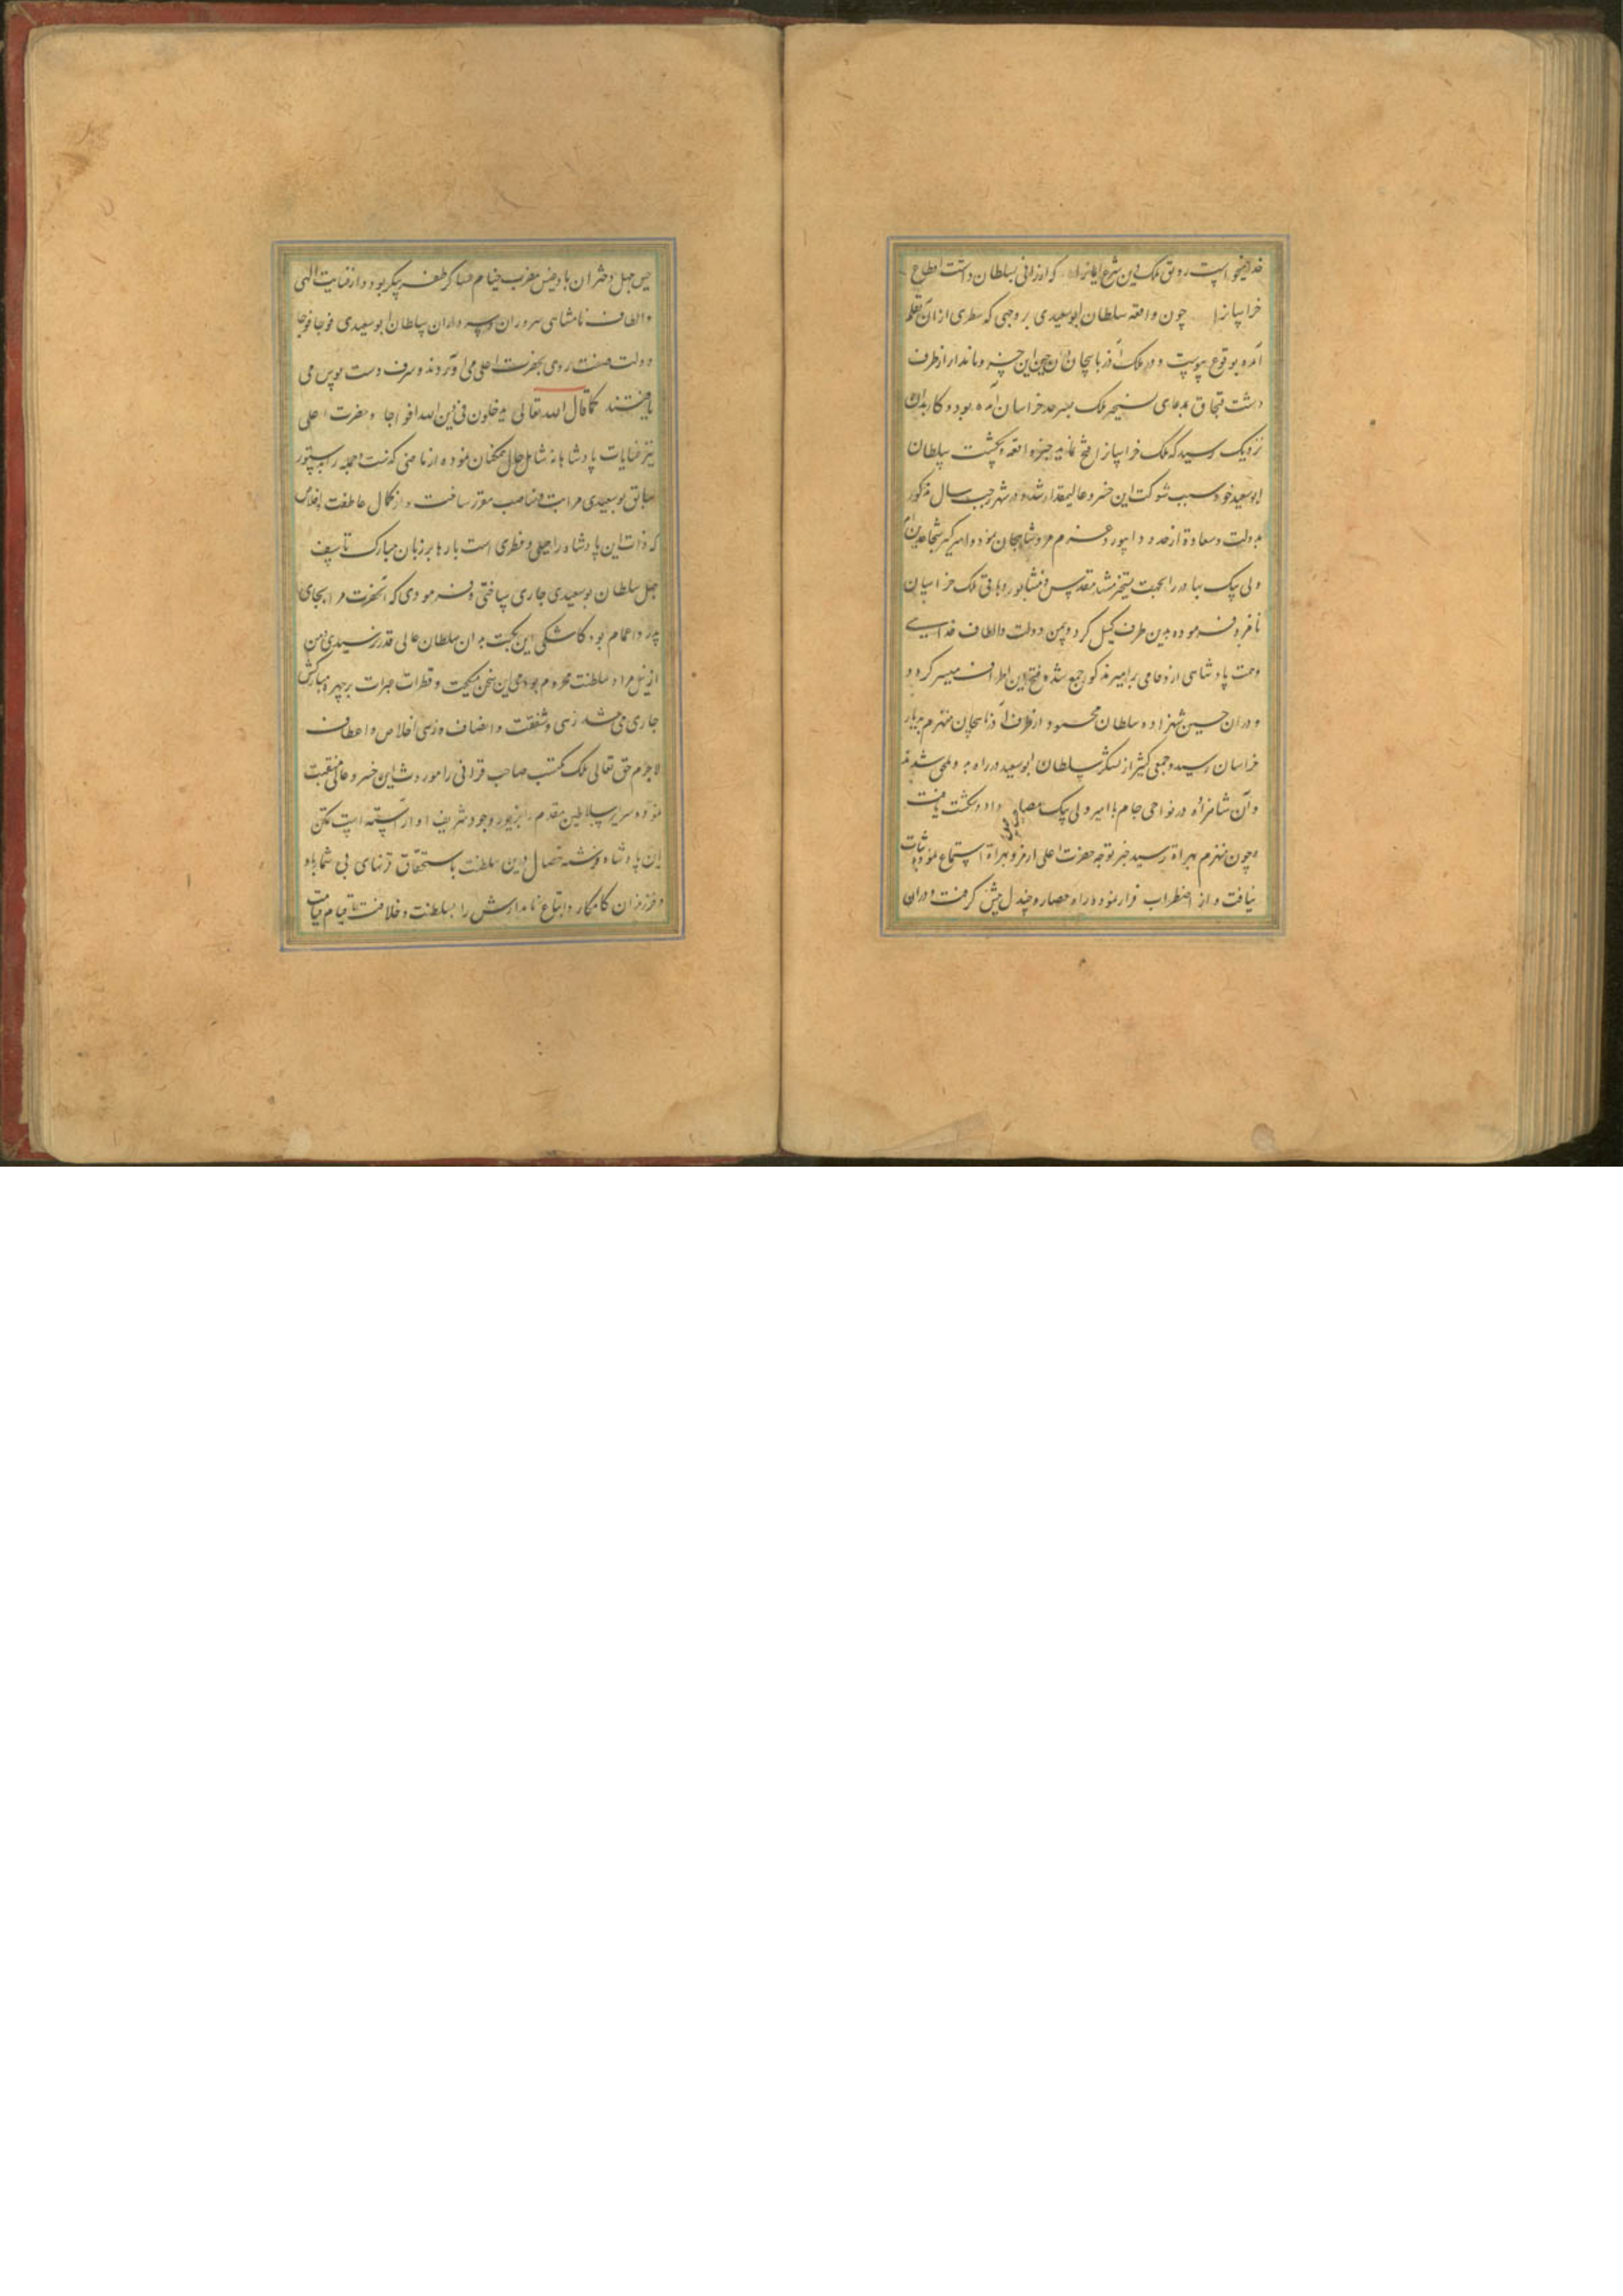 خدا میخواست رونق ملک دین شرع که ارزانی بسلطان داشت
خراسانرا چون واقعه سلطان ابوسعیدی بر وجهی که سطری از آن بقلم
آمده بوقوع پیوست و در ملک آذربایجان این خسرو نامدار از طرف
دشت قبچاق بدعای تسخیر ملک بسرحد خراسان آمده بود و کار بدان
نزدیک رسید که ملک خراسانرا فتح نماید خبر واقعه سلطان
ابوسعید خود سبب شوکت این خسرو عالیمقدار شد و در شهر رجب سال مذکور
بدولت و سعادة از حدود ابیورد عزم مرو شاهجان نمود و امیر کبیر شجاع الدین
ولی بیک بهادر را بجهت تسخیر مشهد مقدس و نشابور و باقی ملک خراسان
نامزد فرموده بدین طرف گسیل کرد و بیمن دولت و الطاف خدایی
و همت پادشاهی ازدحامی بر امیر مذکور جمع شد و فتح این اطراف میسر کرد و
و در آن حین شهزاده سلطان محمود از طرف آذربایجان منهزم بدیار
خراسان رسید و جمعی کثیر از لشکر سلطان ابوسعید در راه بدو ملحق شدند
و آن شاهزاده در نواحی جام با امیر ولی بیک مصاف داد و شکست یافت
و چون منهزم بهراة رسید خبر توجه حضرت اعلی از مرو بهراة استماع نمود ثبات
نیافت و از اضطراب فرار نمود و راه حصار و جندل پیش گرفت و در آن
حین جبل دختران بادغیس مضرب خیام عساکر ظفر پیکر بود و از عنایت الهی
و الطاف نامتناهی سروران و سرداران سلطان ابوسعیدی فوجا فوجا
دولت صفت روی بحضرت اعلی می آوردند و شرف دست بوس می
یافتند کما قال الله تعالی یدخلون فی دین الله افواجا و حضرت اعلی
نیز عنایات پادشاهانه شامل حال همگنان نموده از ماضی گذشت و جمله را بدستور
سابق بوسعیدی مراتب و مناصب مقرر ساخت و از کمال عاطفت اخلاص
که ذات این پادشاه را جبلی و فطری است بارها بر زبان مبارک تأسف
جهل سلطان بوسعیدی جاری ساختی و فرمودی که آنحضرت مرا بجای
پدر و اعمام بود کاشکی این نکبت بدان سلطان عالی قدر نرسیدی و من
از نیل مراد سلطنت محروم بودمی این سخن میگفت و قطرات عبرات بر چهره مبارکش
جاری می شد زهی شفقت و انصاف و زهی اخلاص و اعطاف
لاجرم حق تعالی ملک مکتسب صاحب قرانی را موروث این خسرو عالی منقبت
نموده و سریر سلاطین مقدم را بزیور وجود شریف او آراسته است تمکن
این پادشاه فرشته خصال درین سلطنت باستحقاق قرنهای بی شمار باد
و فرزندان کامکار و اتباع نامدارش را سلطنت و خلافت تا قیام قیامت